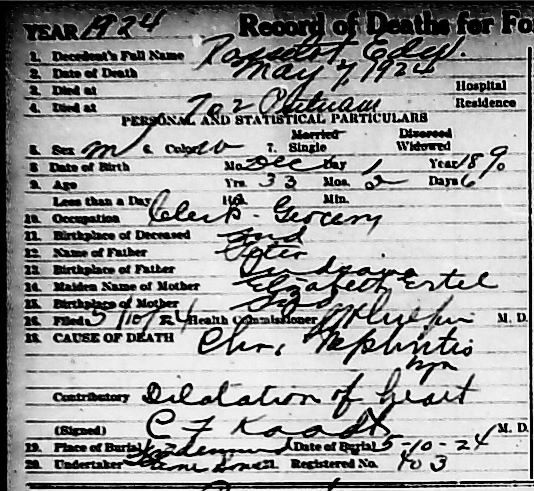 YEAR 1924 Record of Deaths for Fo
1. Decedent's Full Name Edw.
2. Date of Death May 7, 1924
3. Died at Hospital
4. Died at 702 Putnam Residence
PERSONAL AND STATISTICAL PARTICULARS
Married Divorced
5. Sex M 6. Color W 7. Single Widowed
8 Date of Birth Mo. Dec Day 1 Year 1890
9. Age Yrs. 33 Mos. Days 6
Less than a Day Hrs. Min.
10. Occupation Clerk - Grocery
11. Birthplace of Deceased Ind
12. Name of Father Peter
13. Birthplace of Father Indiana
14. Maiden Name of Mother Elizabeth Ertel
15. Birthplace of Mother
16. Filed 5/10/24 Health Commissioner M. D.
18. CAUSE OF DEATH Chr. Nephritis
Contributory Dilatation of heart
(Signed) C F Kaadt M. D.
19. Place of Burial Lindenwood Date of Burial 5-10-24
20. Undertaker Sons 21. Registered No. 403